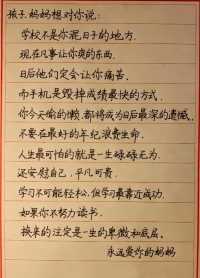 孩子.妈妈想对你说:
学校不是你混日子的地方.
现在凡事让你爽的东西.
日后他们定会让你痛苦.
而手机是毁掉成绩最快的方式.
你今天偷的懒.都将成为日后最深的遗憾.
不要在最好的年纪浪费生命.
人生最可怕的就是一生碌碌无为.
还安慰自己,平凡可贵.
学习不可能轻松.但学习最靠近成功.
如果你不努力读书.
换来的注定是一生的卑微和底层.
永远爱你的妈妈